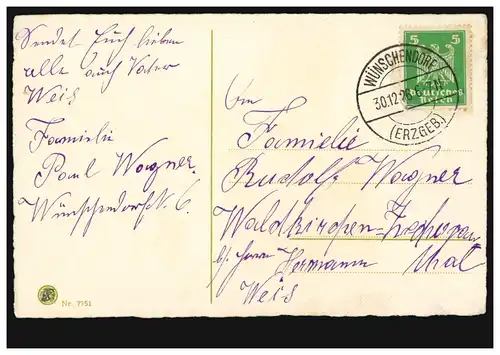 Sendet Euch lieben
alle auch Vater
Weis
Familie
Paul Wagner.
Wünschendorf N. 6.
Nr. 7151
5 5
Deutsches
Reich
WÜNSCHENDORF
30.12.
(ERZGEB.)
An
Famielie
Rudolf Wagner
Waldkirchen-Zschopau
b/ Herrn Hermann
Weis